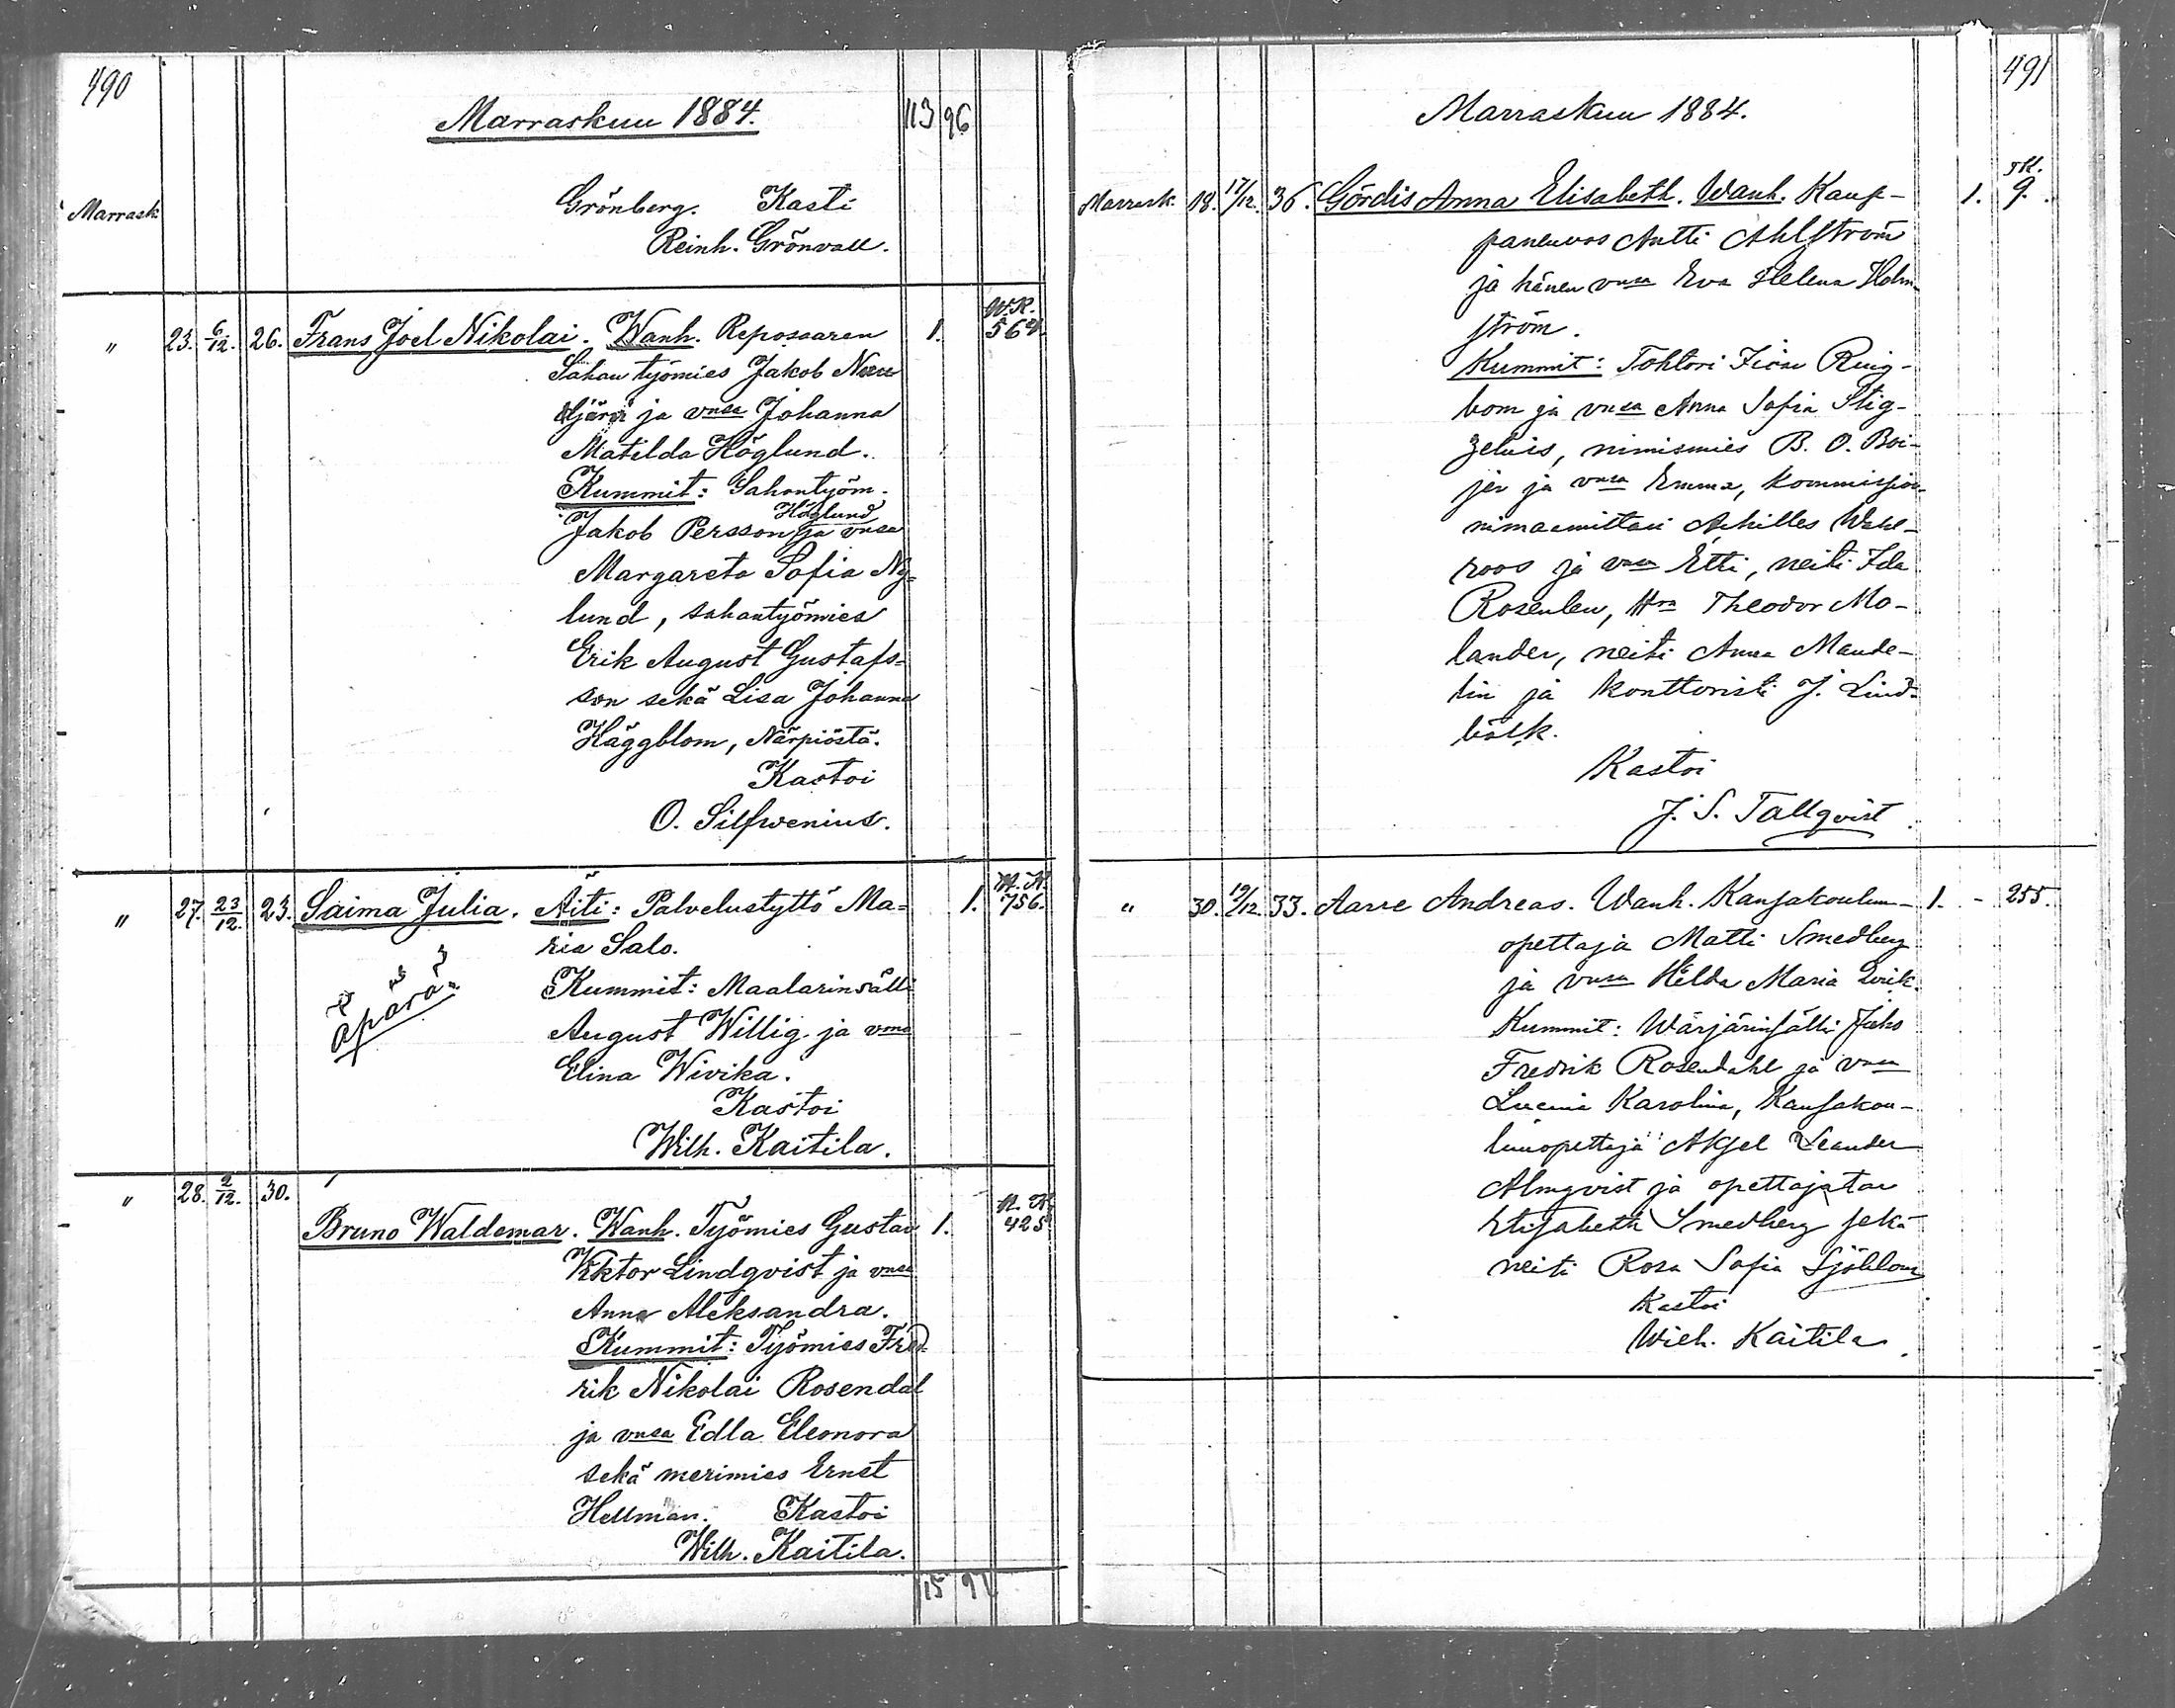 490
Marraskuu 1884. 113 96
Marrask Grönberg. Kasti
Reinh. Grönvall.
W.K.
" 23. 6/12. 26. Frans Joel Nikolai. Wanh. Reposaaren 1. 564.
Sahan työmies Jakob
järvi ja vnsa Johanna
Matilda Höglund.
Kummit: Sahantyöm.
Höglund
Jakob Persson ja vnsa
Margareta Sofia Ny-
lund, sahantyömies
Erik August Gustafs-
son sekä Lisa Johanna
Häggblom, Närpiöstä.
Kastoi
O. Silfwenius.
" 27. 23/12. 23. Saima Julia. Äiti: Palvelustyttö Ma- 1. 756.
ria Salo.
äpärä Kummit: Maalarinsälli
August Willig ja vmo
Elina Wivika.
Kastoi
Wilh. Kaitila.
" 28. 2/12. 30.
Bruno Waldemar. Wanh. Työmies Gustav 1. 425
Viktor Lindqvist ja vnsa
Anna Aleksandra.
Kummit: Työmies Fred-
rik Nikolai Rosendal
ja vnsa Edla Eleonora
sekä merimies Ernst
Hellman. Kastoi
Wilh. Kaitila.
15 97
491
Marraskuu 1884.
Marrask. 18. 17/12. 36. Gördis Anna Elisabeth. Wanh. Kaup- 1. 9.
paneuvos Antti Ahlström
ja hänen vnsa Eva Helena Holm-
ström.
Kummit: Tohtori Ring-
bom ja vnsa Anna Sofia Stig-
zelius, nimismies B. O. Boi-
jer ja vnsa Emma, kommission-
nimaamittari Achilles Wahl-
roos ja vnsa Etti, neiti Ida
Rosenlew, Hra Theodor Mo-
lander, neiti Anna Mande-
lin ja konttoristi J. Lind-
bäck.
Kastoi
J. S. Tallqvist.
" 30. 19/12. 33. Aarre Andreas. Wanh. Kansakoulun- 1. - 255.
opettaja Matti Smedberg
ja vnsa Hilda Maria Qvik.
Kummit: Wärjärinsälli Juho
Fredrik Rosendahl ja vnsa
Karolina, Kansakou-
lunopettaja Aksel Leander
Almqvist ja opettajatar
Elisabeth Smedberg sekä
neiti Rosa Sofia Sjöblom
Kastoi
Wilh. Kaitila.